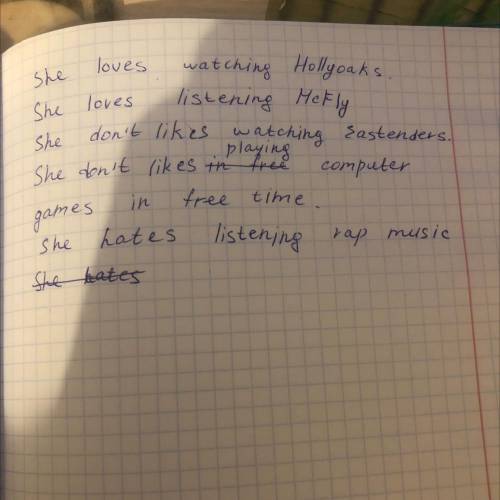 She loves watching Hollyoaks.
She loves listening McFly
She don't likes watching Eastenders.
playing
She don't likes in free computer
games in free time.
She hates listening rap music
She hates